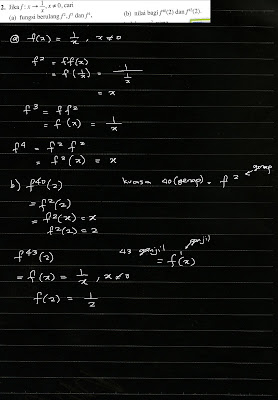 2. Jika f : x → 1/x, x ≠ 0, cari
(a) fungsi berulang f², f³ dan f⁴,   (b) nilai bagi f⁴⁰(2) dan f⁴³(2).
(a) f(x) = 1/x , x ≠ 0
f² = ff(x)
= f(1/x) = 1/(1/x)
= x
f³ = f f²
= f(x) = 1/x
f⁴ = f² f²
= f²(x) = x
b) f⁴⁰(2)   kuasa 40 (genap) = f² ← genap
= f²(2)
= f²(x) = x
f²(2) = 2
f⁴³(2)   43 ganjil   ganjil
= f(x) = 1/x , x ≠ 0   = f¹(x)
f(2) = 1/2